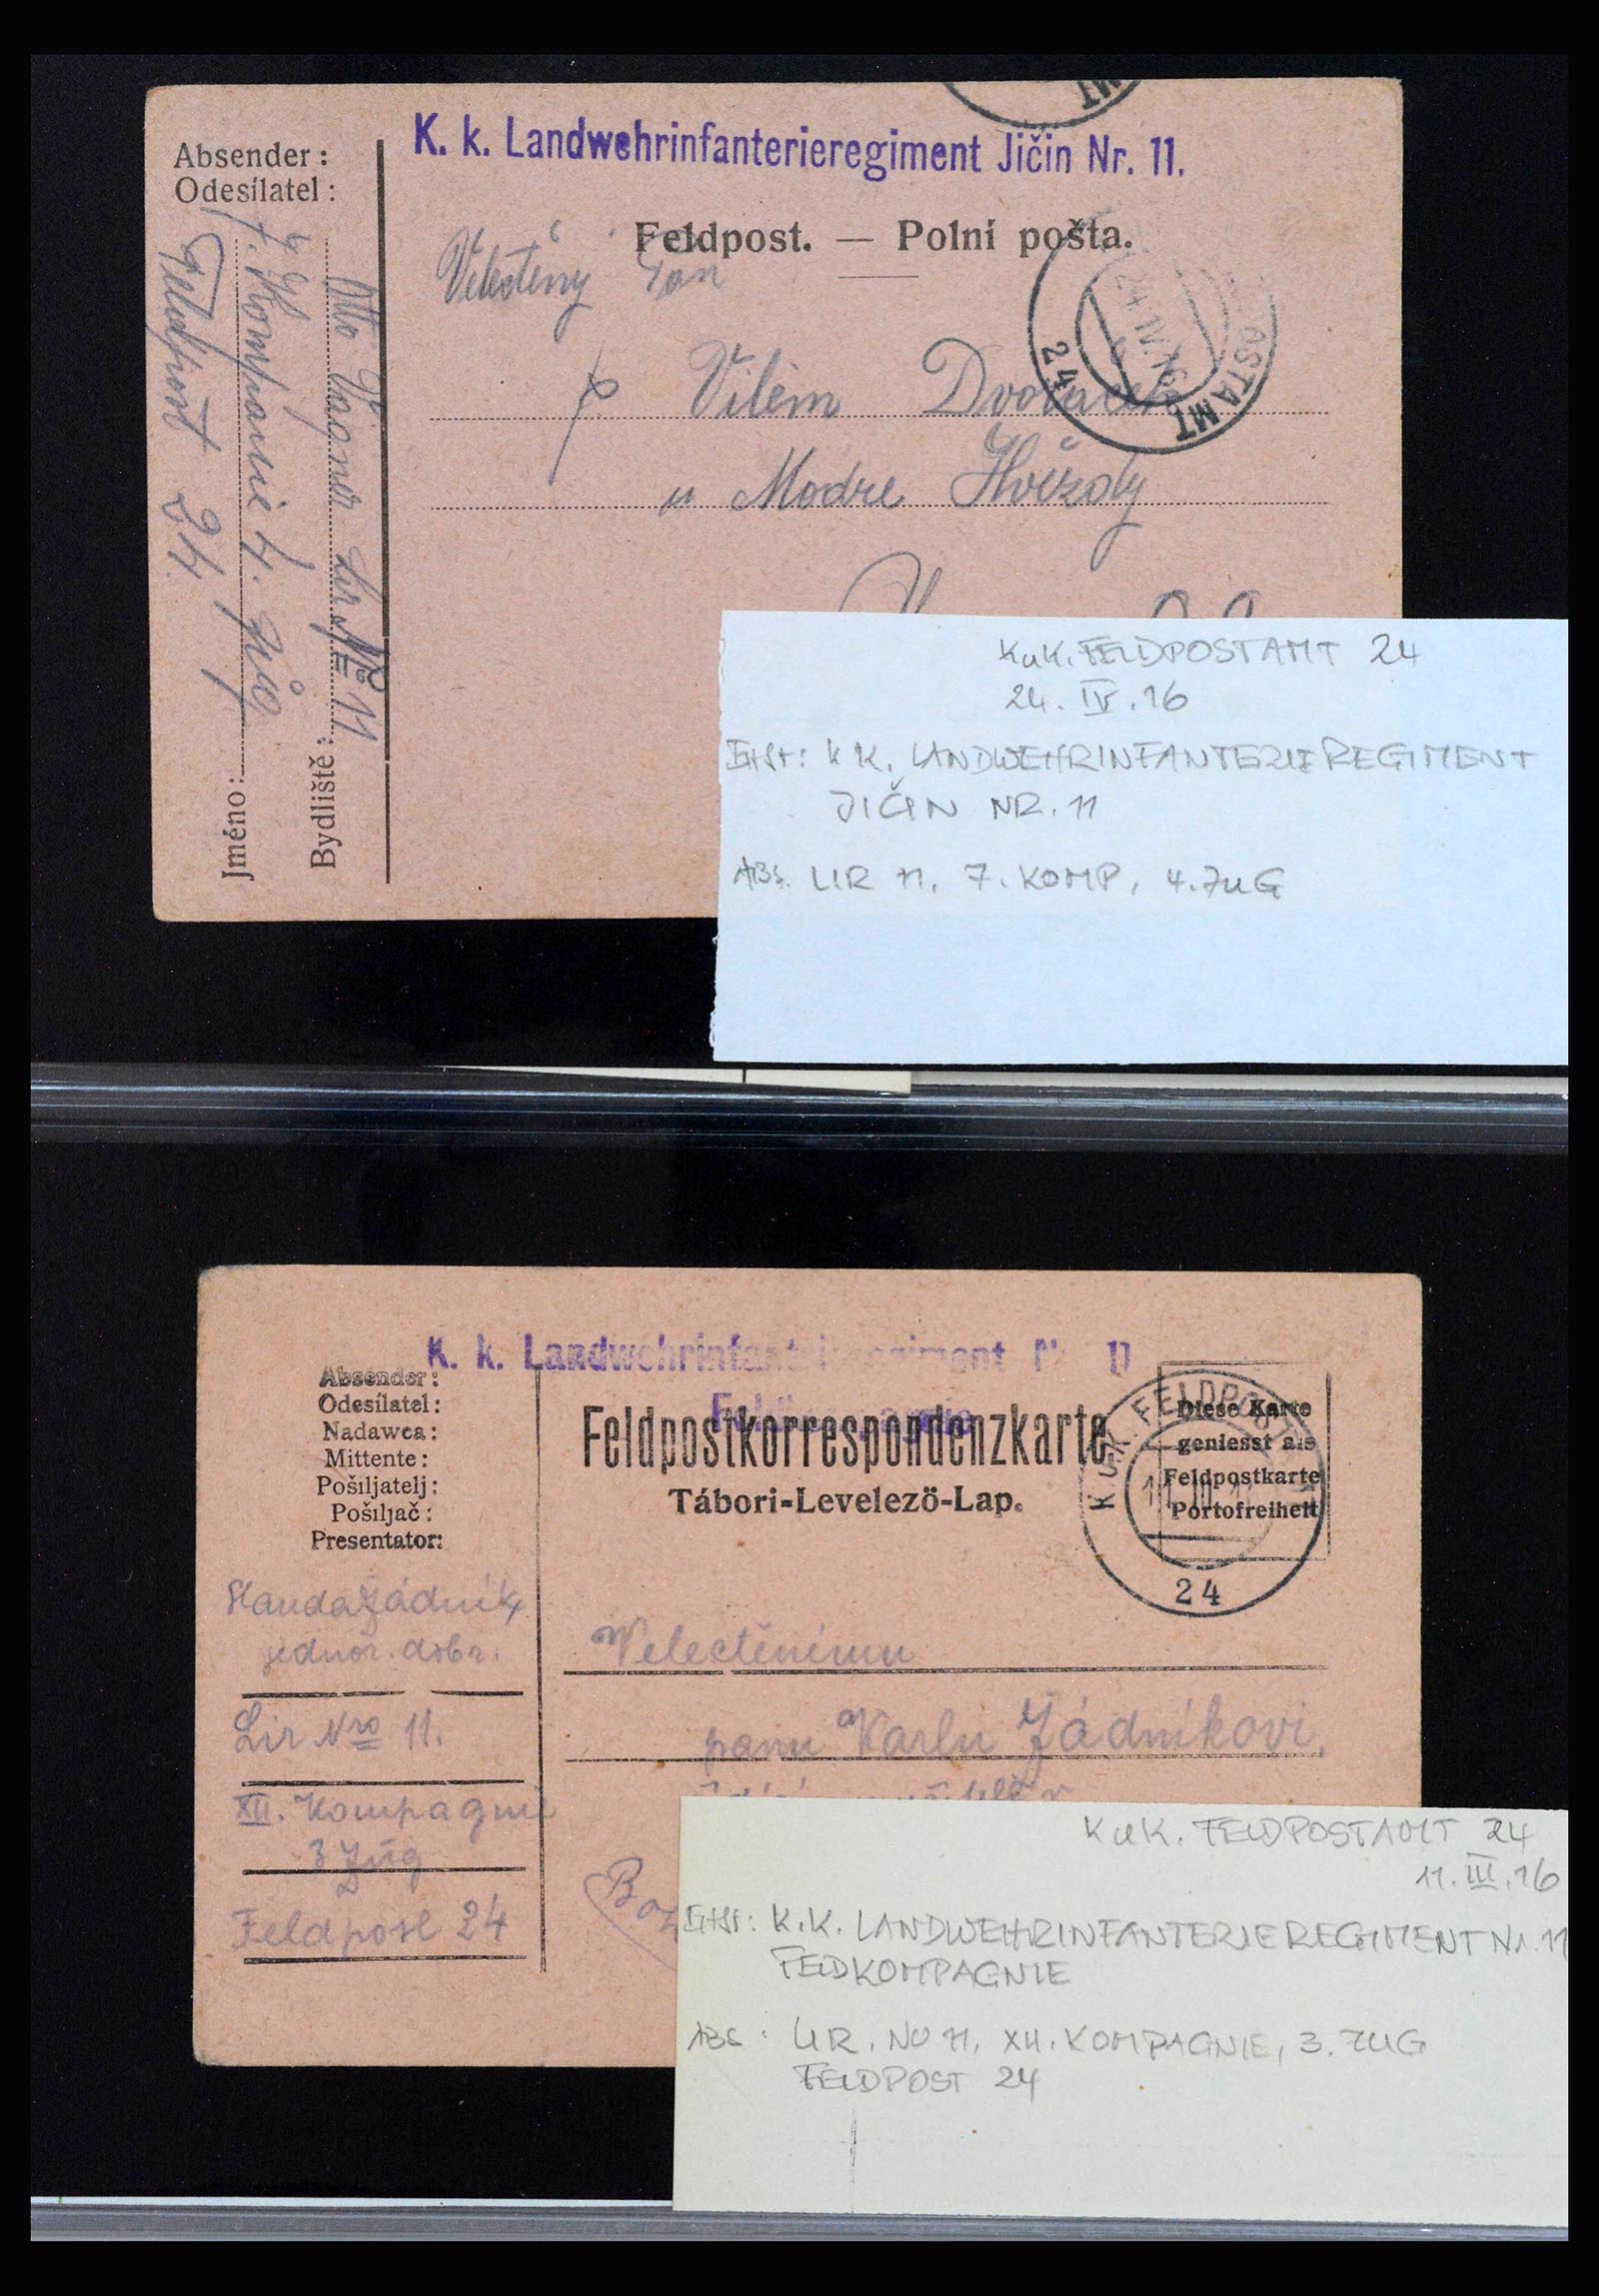 K. k. Landwehrinfanterieregiment Jičin Nr. 11.
Absender:
Odesílatel:
Feldpost. — Polní pošta.
Velectěný Pan
p. Vilém Dvořáček
u Modre Hvězdy
24 POSTAMT
24 IV. 16
MT
Otto Vagner Lir № 11
7. Kompanie 4. Zug
Feldpost 24.
Jméno:
Bydliště:
KuK. FELDPOSTAMT 24
24. IV. 16
EHSt: K K. LANDWEHRINFANTERIEREGIMENT
JIČIN NR. 11
ABS. LIR 11, 7. KOMP, 4. ZUG
K. k. Landwehrinfanterieregiment Nr. 11
Absender:
Odesílatel:
Nadawca:
Mittente:
Pošiljatelj:
Pošiljač:
Presentator:
Feldpostkorrespondenzkarte
Tábori-Levelező-Lap.
Diese Karte
geniesst als
Feldpostkarte
Portofreiheit
K.u.K. FELDPOST
24
Standa Žádník,
jednor. dobr.
Lir Nro 11.
XII. Kompagnie
3 Zug
Feldpost 24
Velectěnému
panu Karlu Žádníkovi,
KuK. FELDPOSTAMT 24
11. III. 16
EHSt: K.K. LANDWEHRINFANTERIEREGIMENT Nr. 11
FELDKOMPAGNIE
ABS: LIR. NO 11, XII. KOMPAGNIE, 3. ZUG
FELDPOST 24